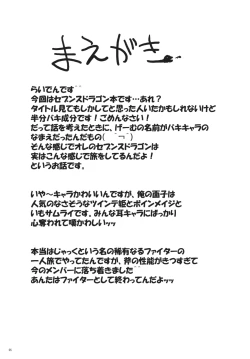 まえがき
らいでんです^^
今回はセブンスドラゴン本です…あれ?
タイトル見てもしかしてと思った人いたかもしれないけど
半分バキ成分です!ごめんなさい!
だって話を考えたときに、げーむの名前がバキキャラの
なまえだったんだもの( ^¬^)
そんな感じでオレのセブンスドラゴンは
実はこんな感じで旅をしてるんだよ!
というお話です。
いや~キャラかわいいんですが、俺の面子は
人気のなさそうなツインテ姫とポインメイジと
いもサムライです、みんな耳キャラにばっかり
心奪われて嘆かわしいッ
本当はじゃっくという名の稀有なるファイターの
一人旅でやってたんですが、斧の性能がきつすぎて
今のメンバーに落ち着きました^^
あんたはファイターとして終わってんだよッッ